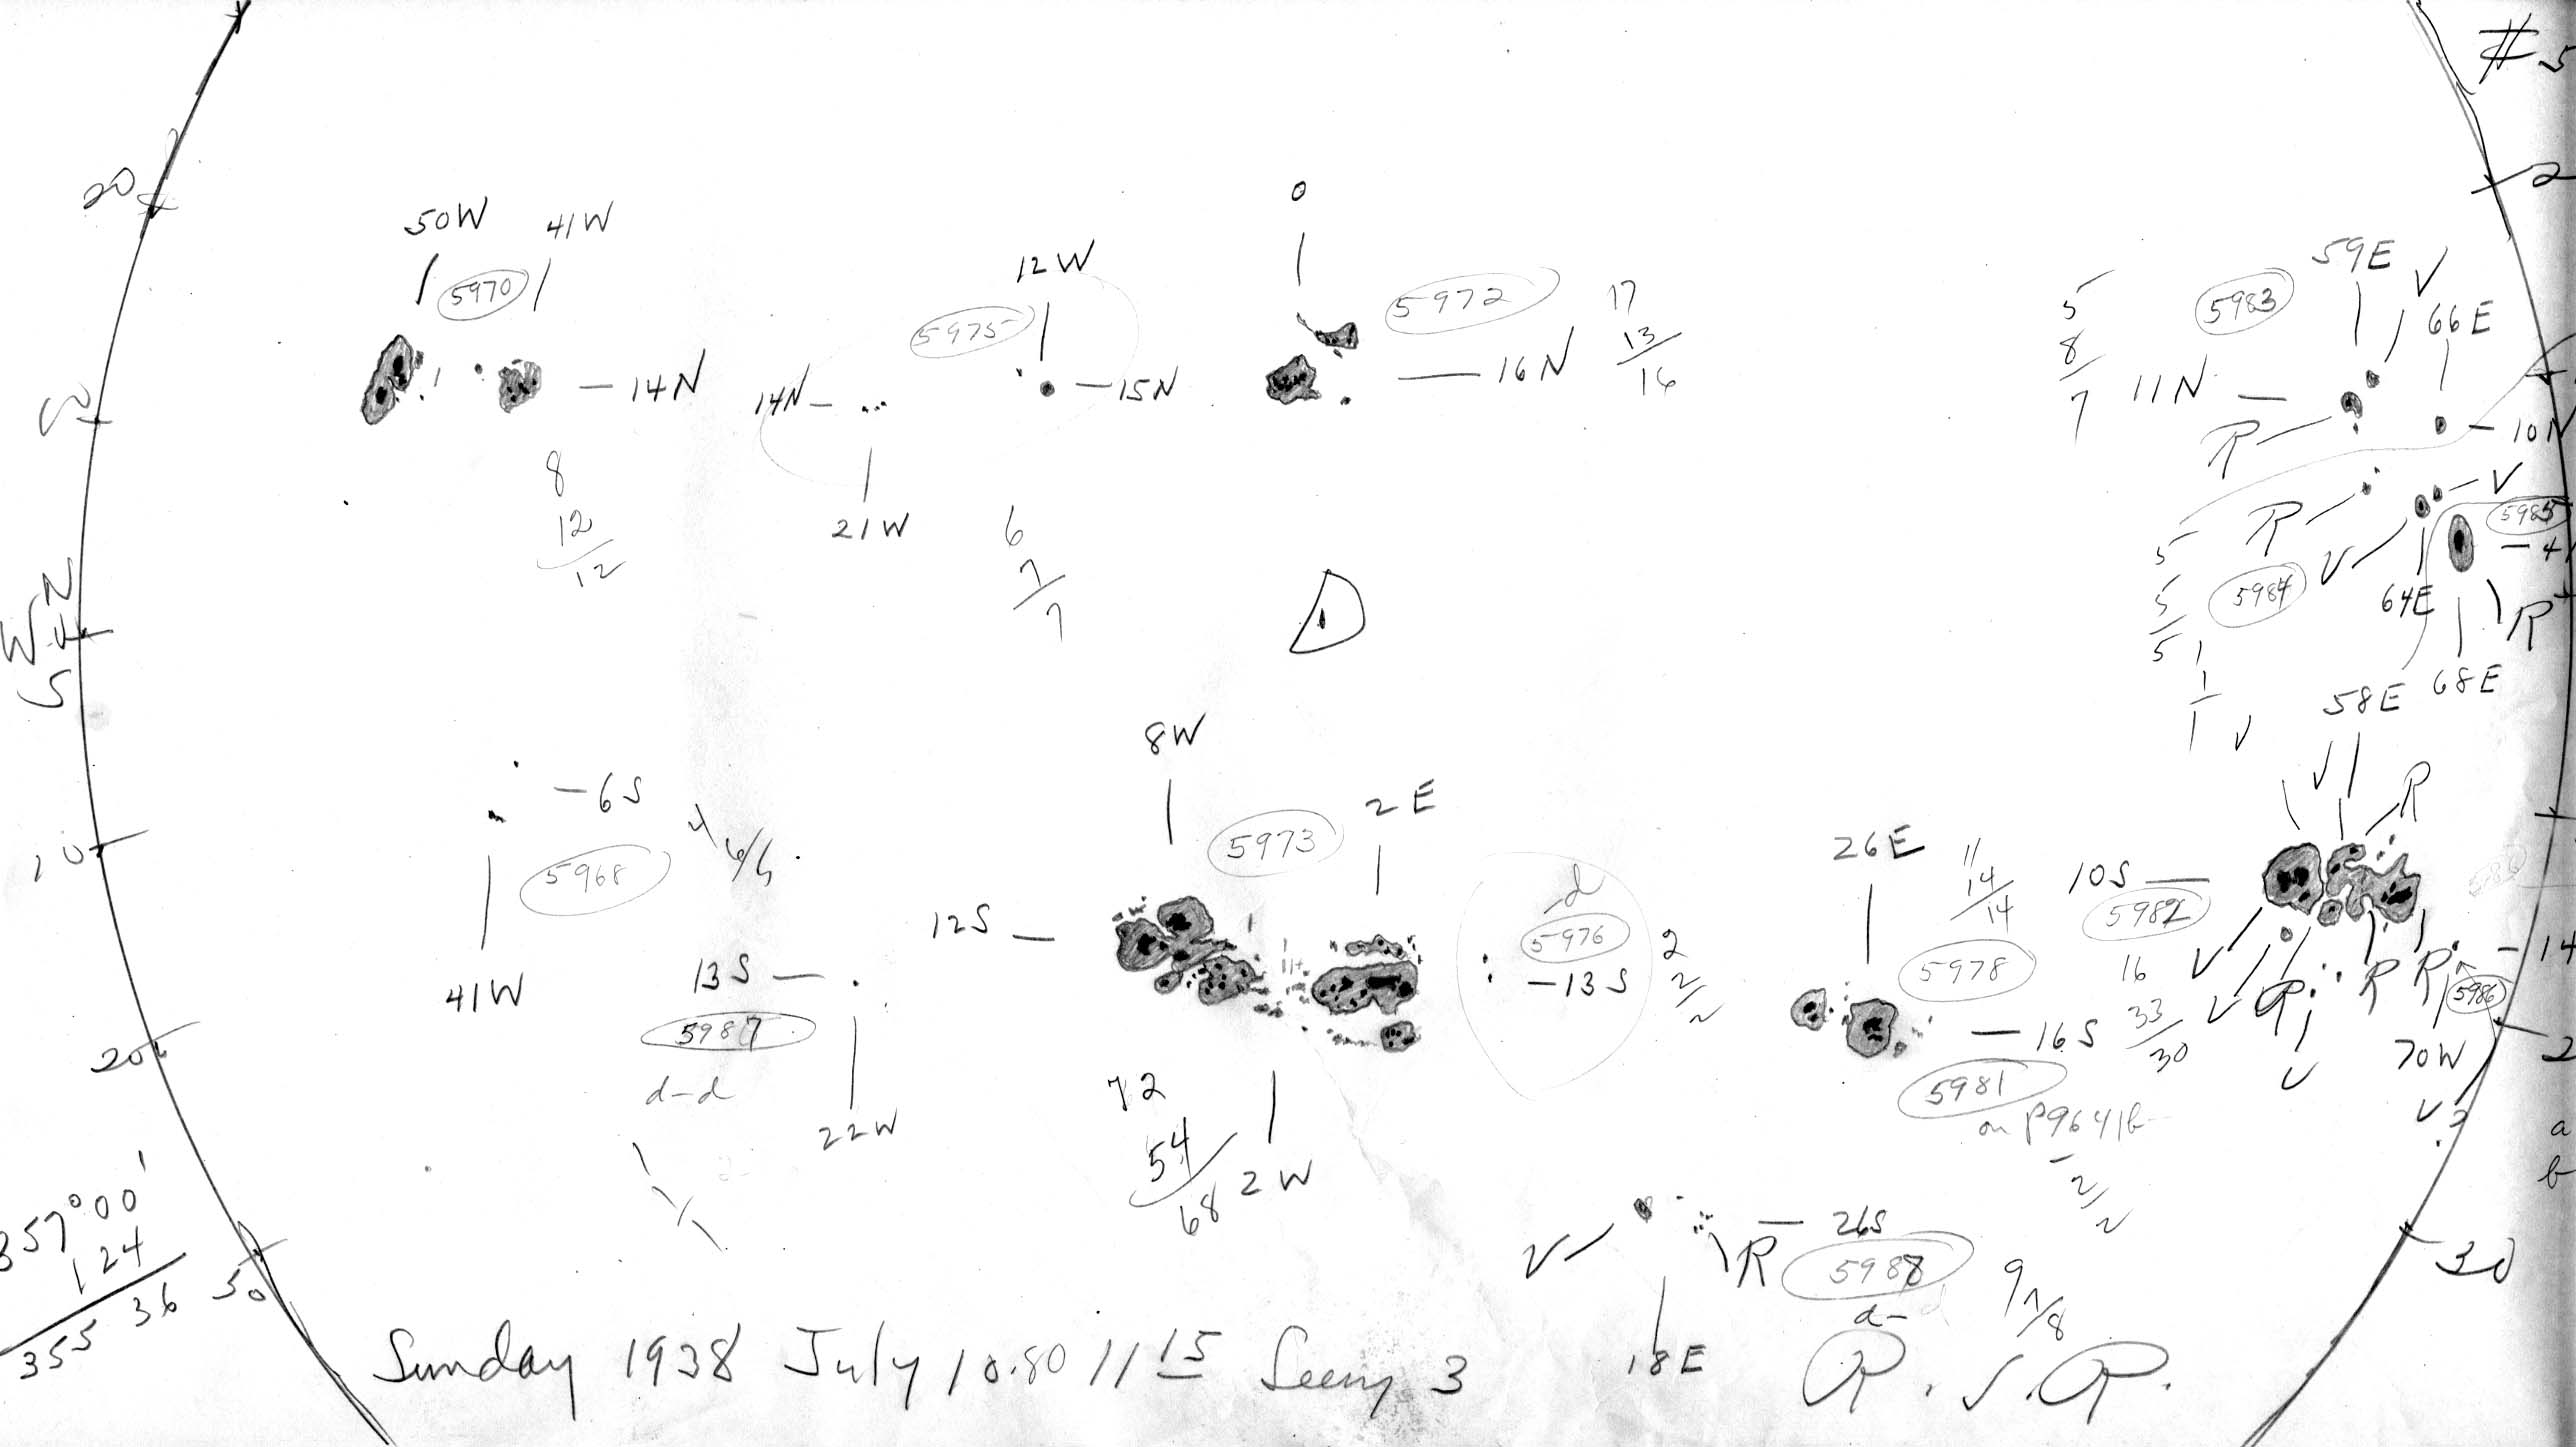 #5
20
2
50W 41W
5970
14N
8
12
12
12W
5975
14N
15N
21W
6
7
7
0
5972
16N
17
13
16
59E
V
5983
66E
5
8
7
11N
R
10N
V
R
V
5985
4
5984
64E
R
68E
5
5
5
1
1
1
N
W
S
D
6S
5968
41W
4
13S
5987
d-d
22W
1
10
8W
5973
2E
12S
2W
72
54
68
d
5976
13S
2
2
2
26E
11
14
14
5978
16S
5981
on p9641b
2
2
V
V
58E
V
R
10S
5982
16
33
30
V
V
R
V
R
R
14
5986
70W
V?
a
b
20
2
26S
V
R
5988
d-
18E
9
7
8
30
357°00'
124
355 36
Sunday 1938 July 10.80 11 15 Seeing 3
R.S.R.